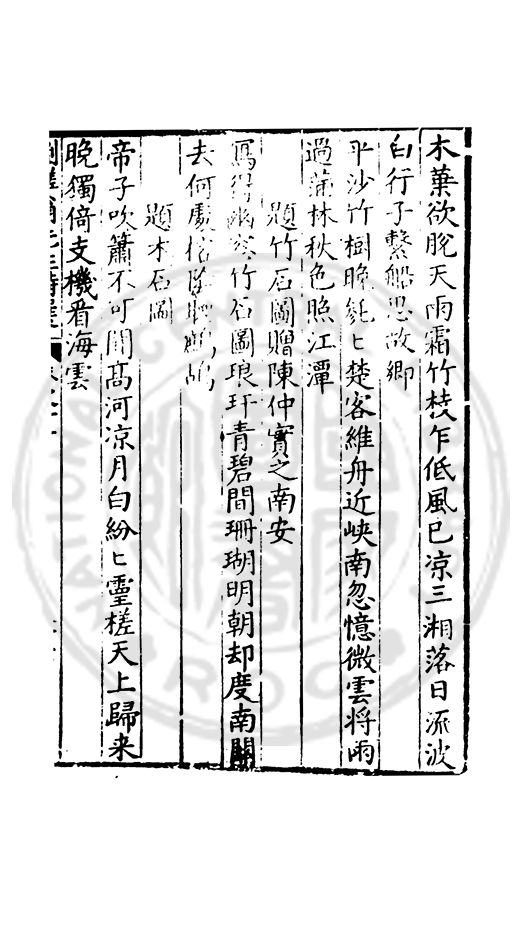 木葉欲脫天雨霜竹枝乍低風已凉三湘落日流波
白行子繫船思故鄉
平沙竹樹晚毿〻楚客維舟近峽南忽憶微雲將雨
過蒲林秋色照江潭
題竹石圖贈陳仲實之南安
寫得幽 竹石圖琅玕青碧間珊瑚明朝却度南關
去何處 聽鷓鴣
題木石圖
帝子吹簫不可聞高河凉月白紛〻靈槎天上歸来
晚獨倚支機看海雲